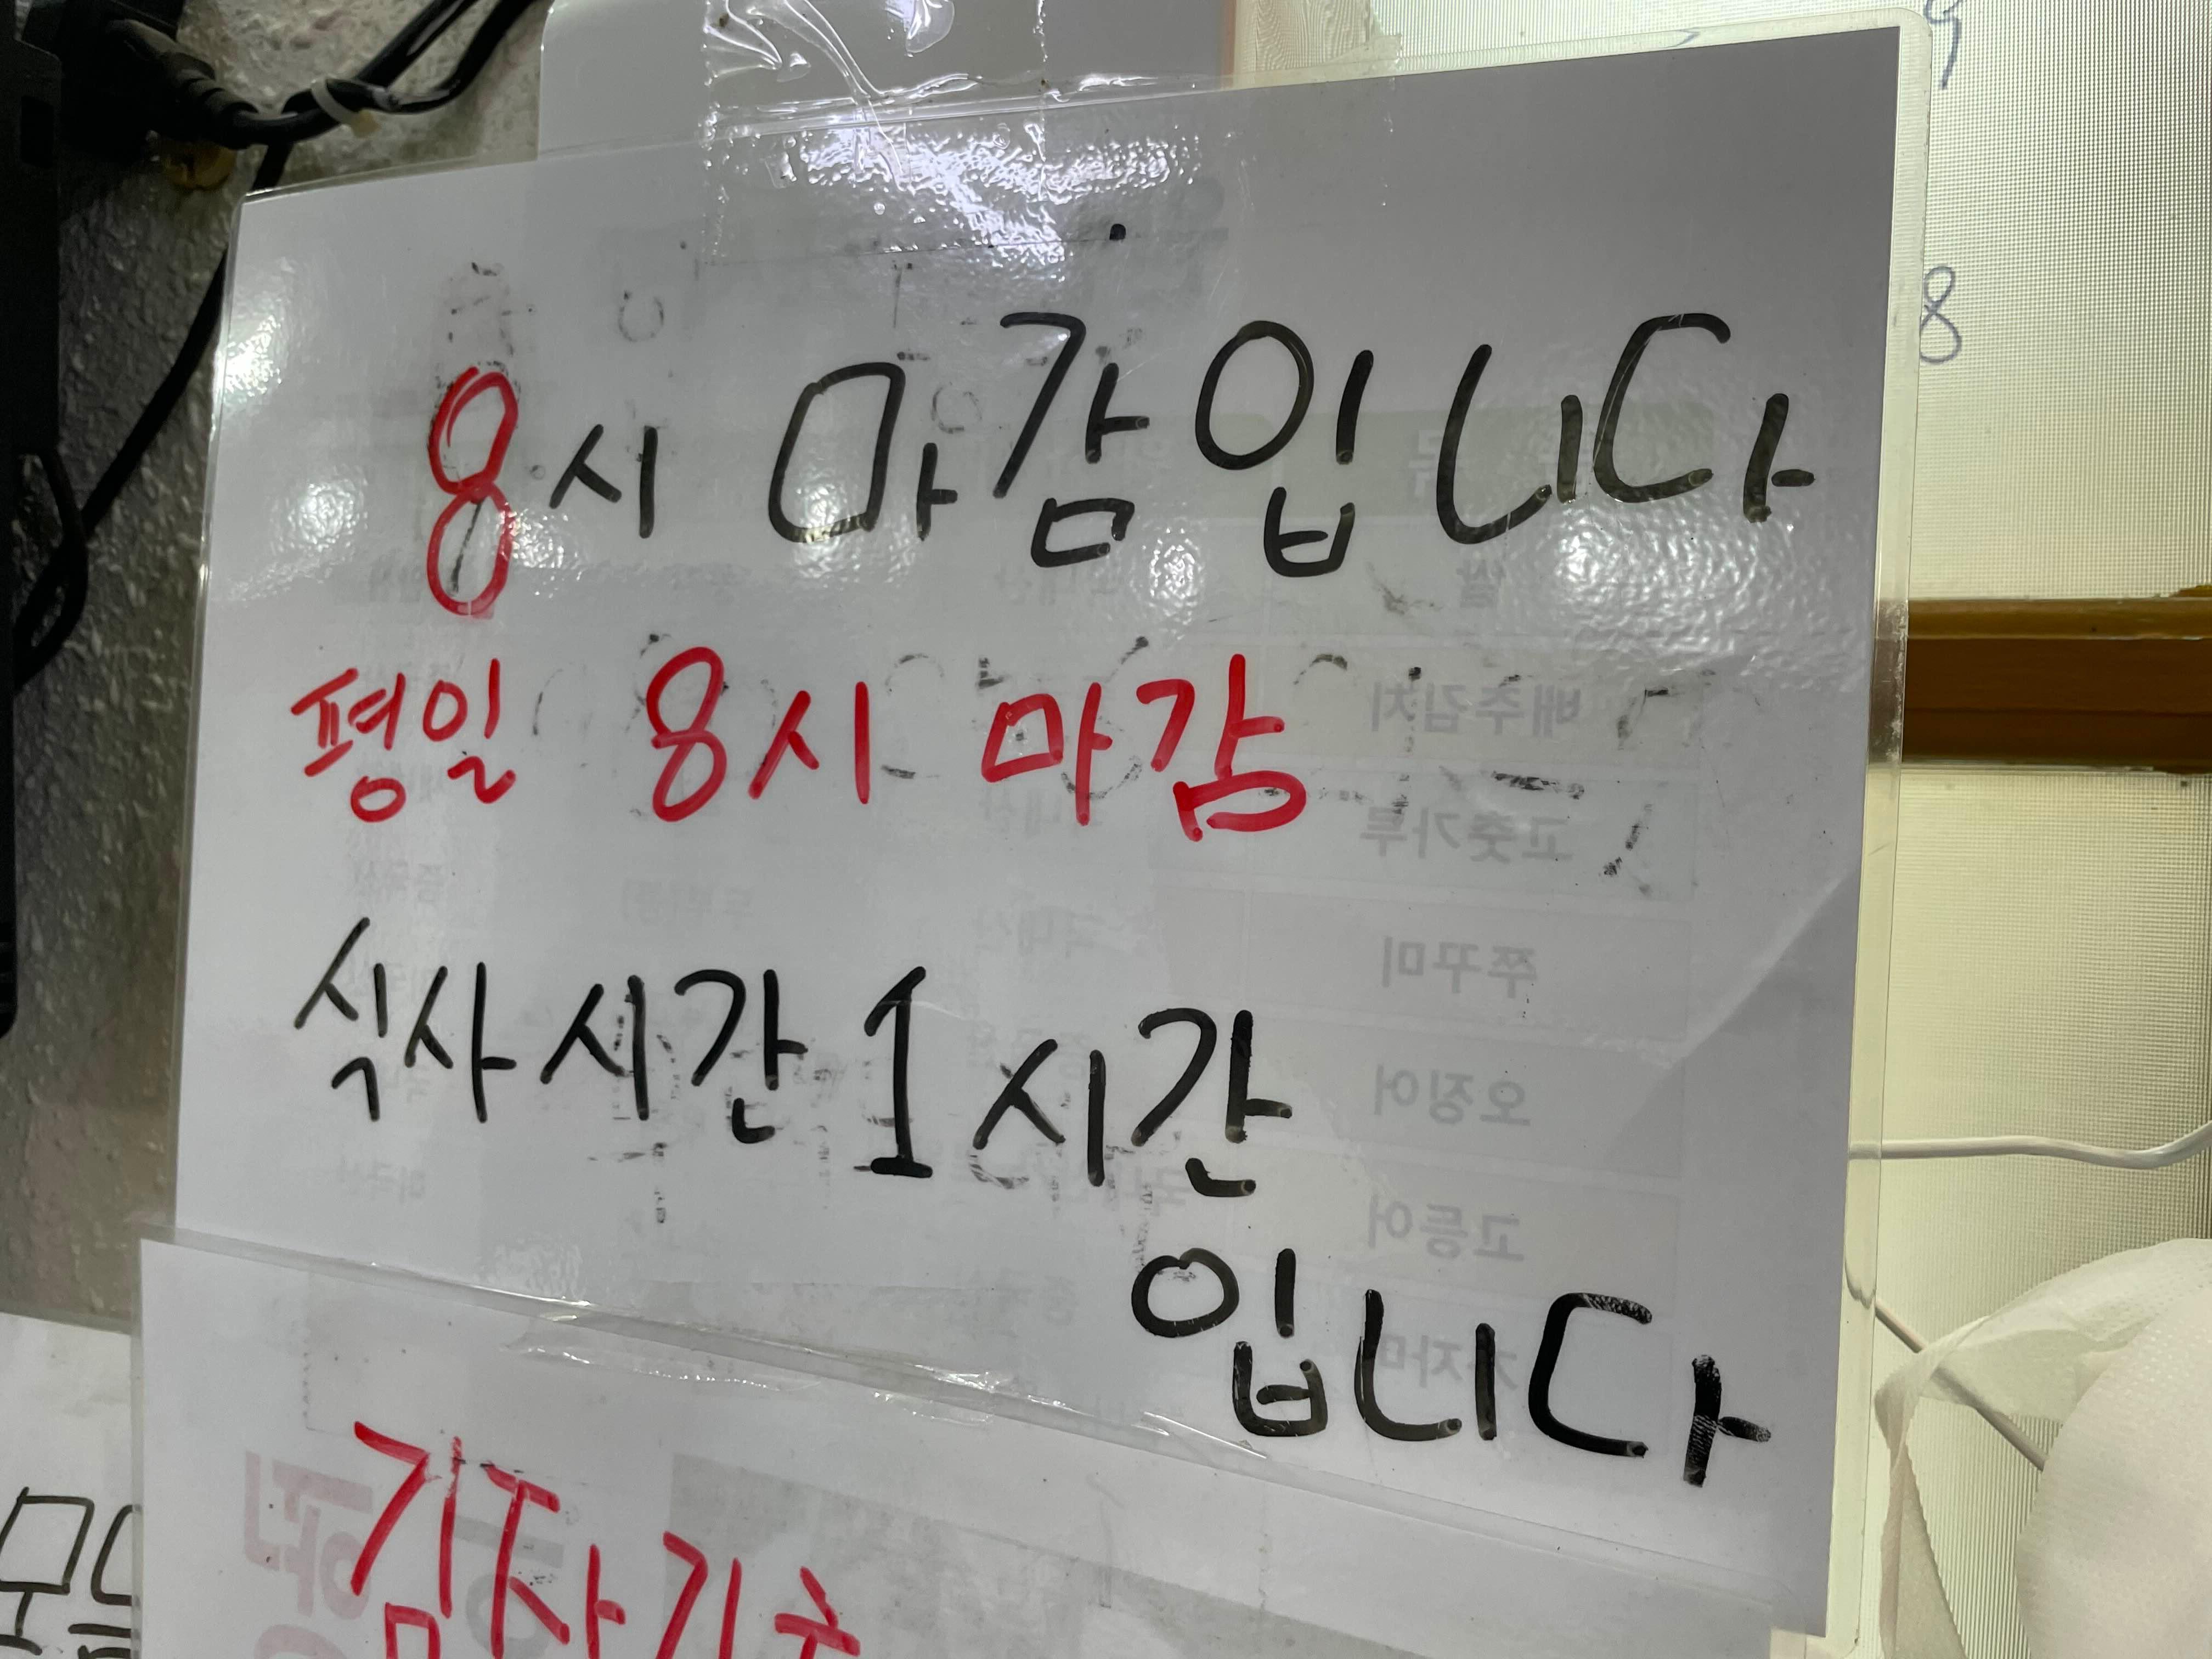 8시 마감입니다
평일 8시 마감
식사시간 1시간
입니다
배추김치
고춧가루
쭈꾸미
오징어
고등어
8